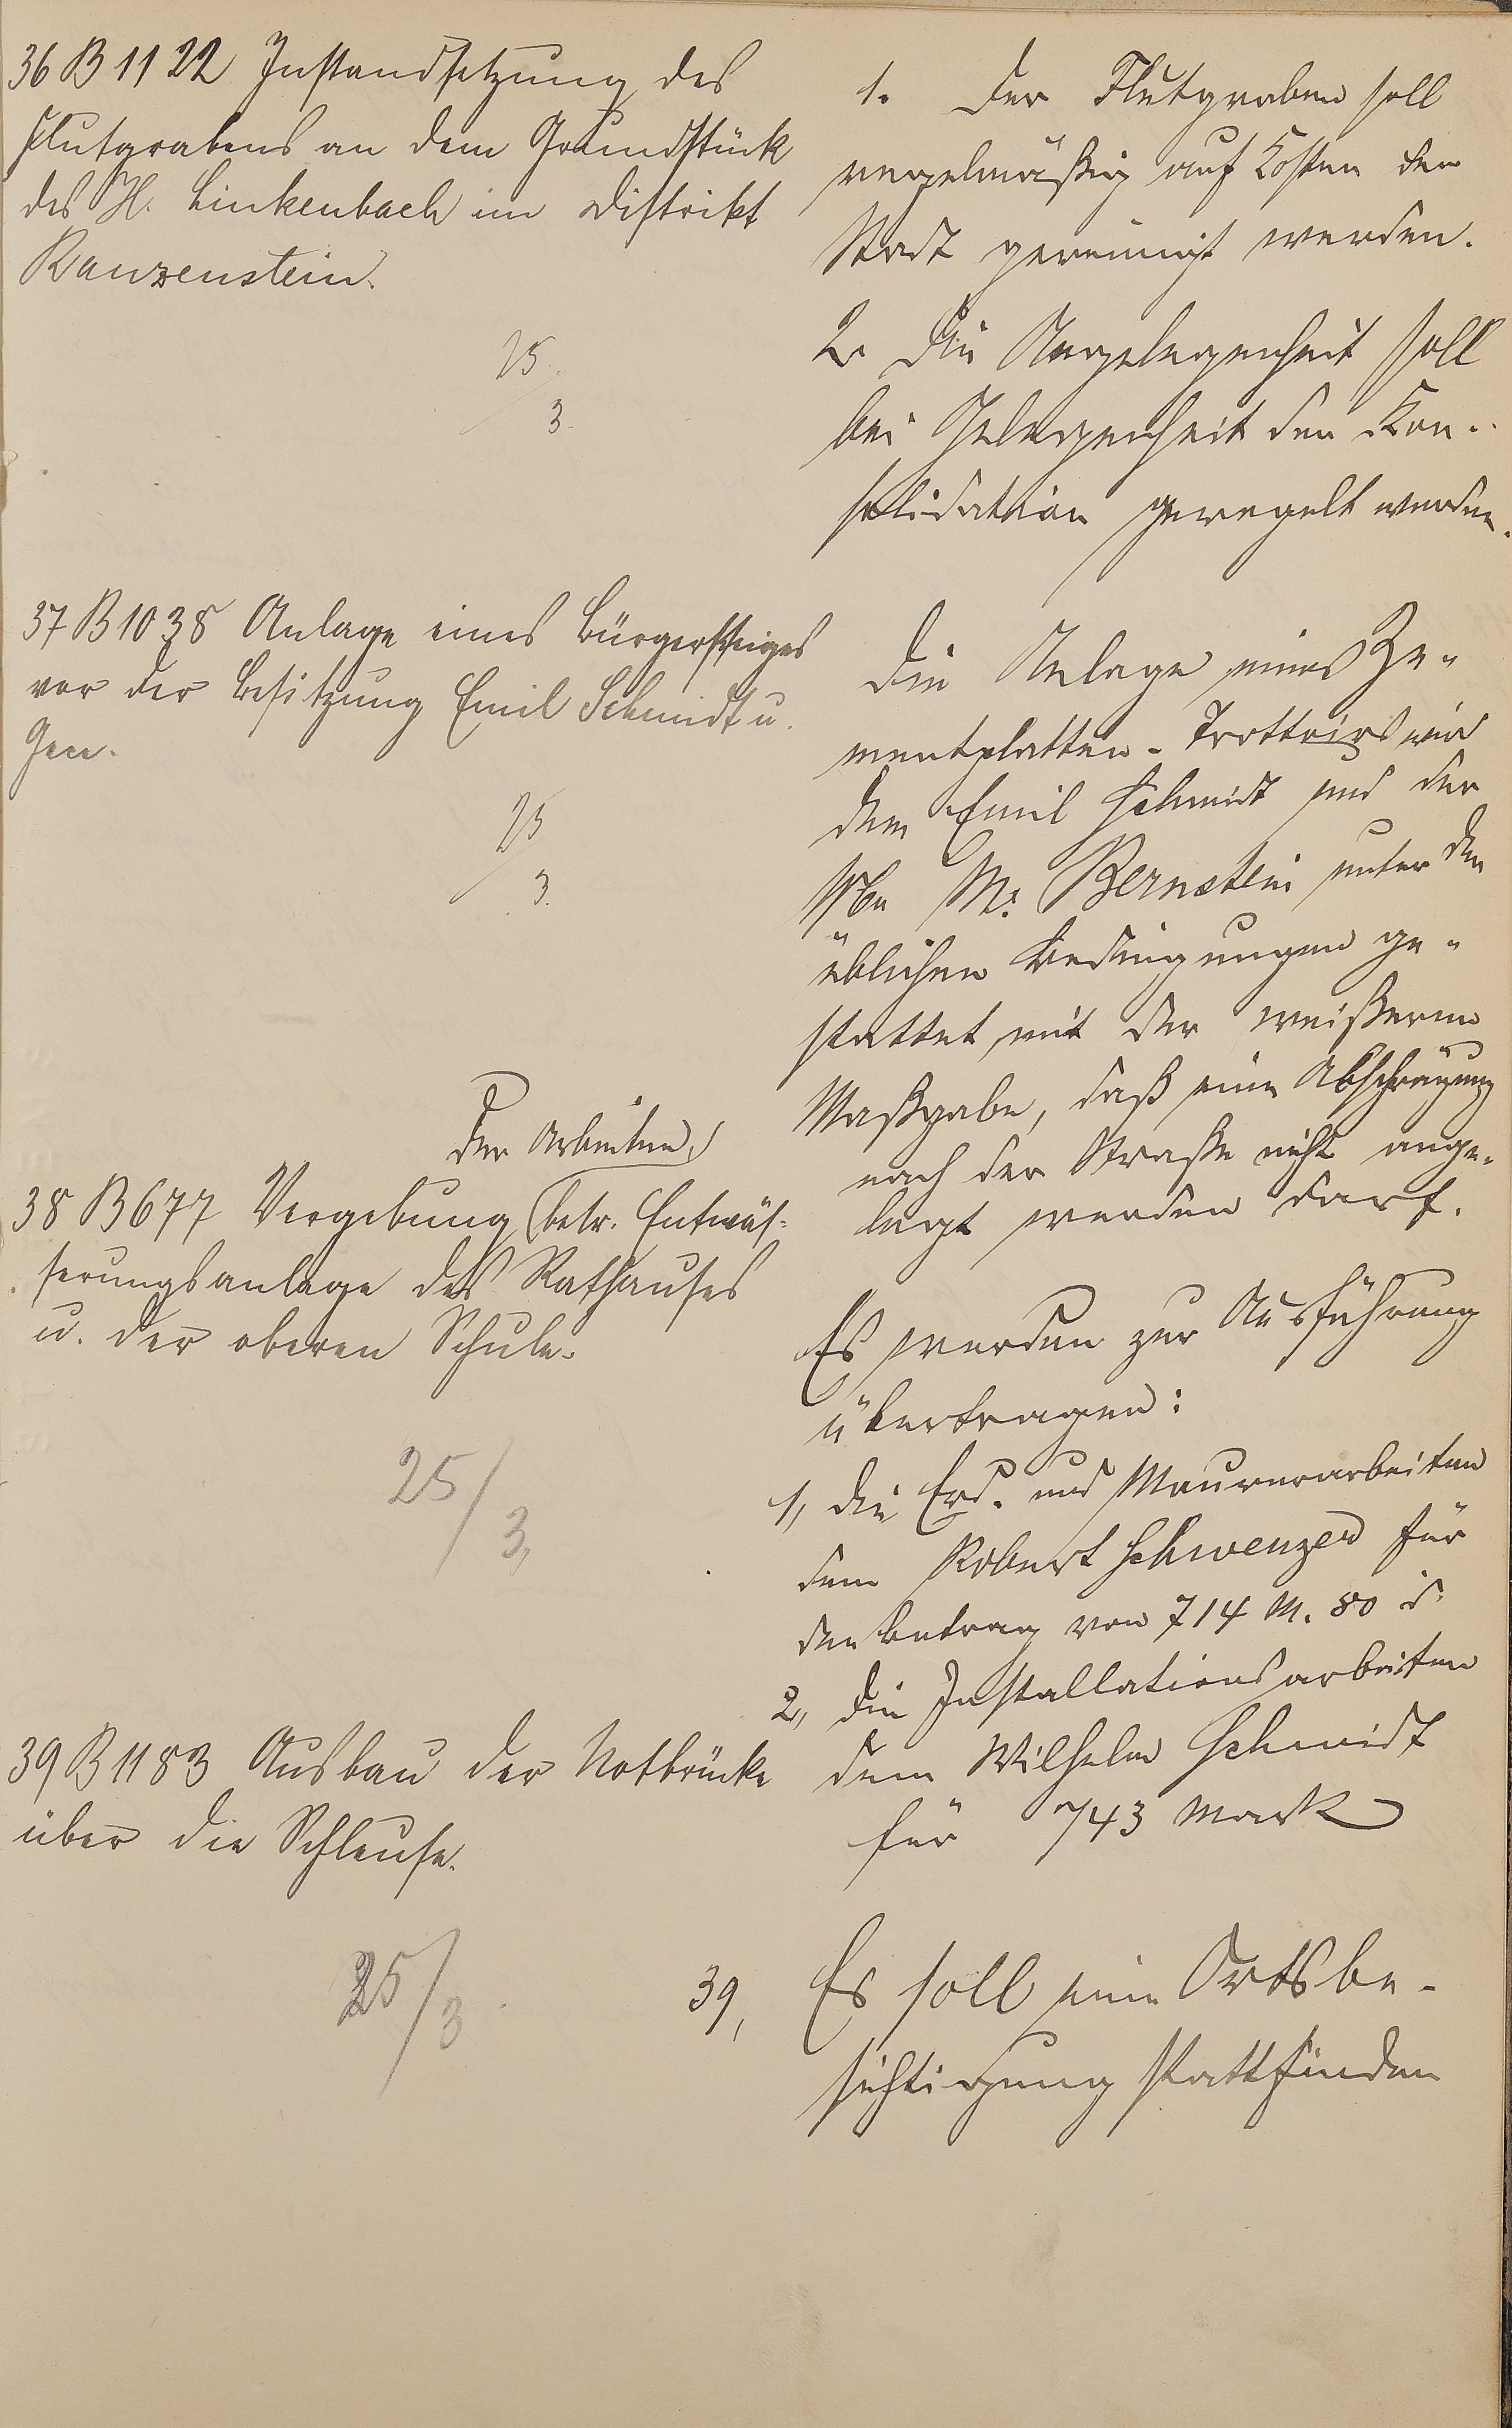 36 B 1122 Instandsetzung des
Flutgrabens an dem Grundstück
des H. Linkenbach im Distrikt
Ranzenstein.
25
3.
1. Der Flutgraben soll
regelmäßig auf Kosten der
Stadt gereinigt werden.
2. Die Angelegenheit soll
bei Gelegenheit der Kon-
solidation geregelt werden.
37 B 1038 Anlage eines Bürgersteiges
vor der Besitzung Emil Schmidt u.
Gen.
25
3.
Die Anlage eines Ze-
mentplatten-Trottoirs wird
dem Emil Schmidt und der
M. Bernstein unter den
üblichen Bedingungen ge-
stattet mit der weiteren
Maßgabe, daß eine Abschrägung
nach der Straße nicht ange-
legt werden darf.
der Arbeiten
38 B 677 Vergebung betr. Entwäs-
serungsanlage des Rathauses
u. der oberen Schule.
25/3.
Es werden zur Ausführung
übertragen:
1, die Erd- und Maurerarbeiten
dem Robert Schwenzer für
den Betrag von 714 M. 80 d.
2, die Installationsarbeiten
dem Wilhelm Schmidt
für 743 Mark
39 B 1183 Ausbau der Notbrücke
über die Schleuse.
25/3
39, Es soll eine Ortsbe-
sichtigung stattfinden